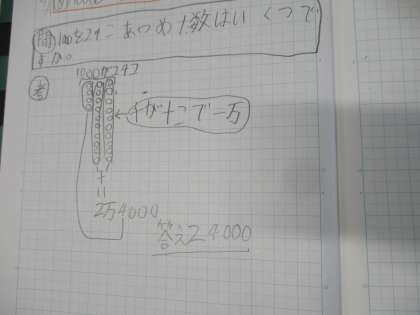 問 1000を24こあつめた数はいくつで
すか。
考
1000が24こ
千が十こで一万
2万4000
答え24000